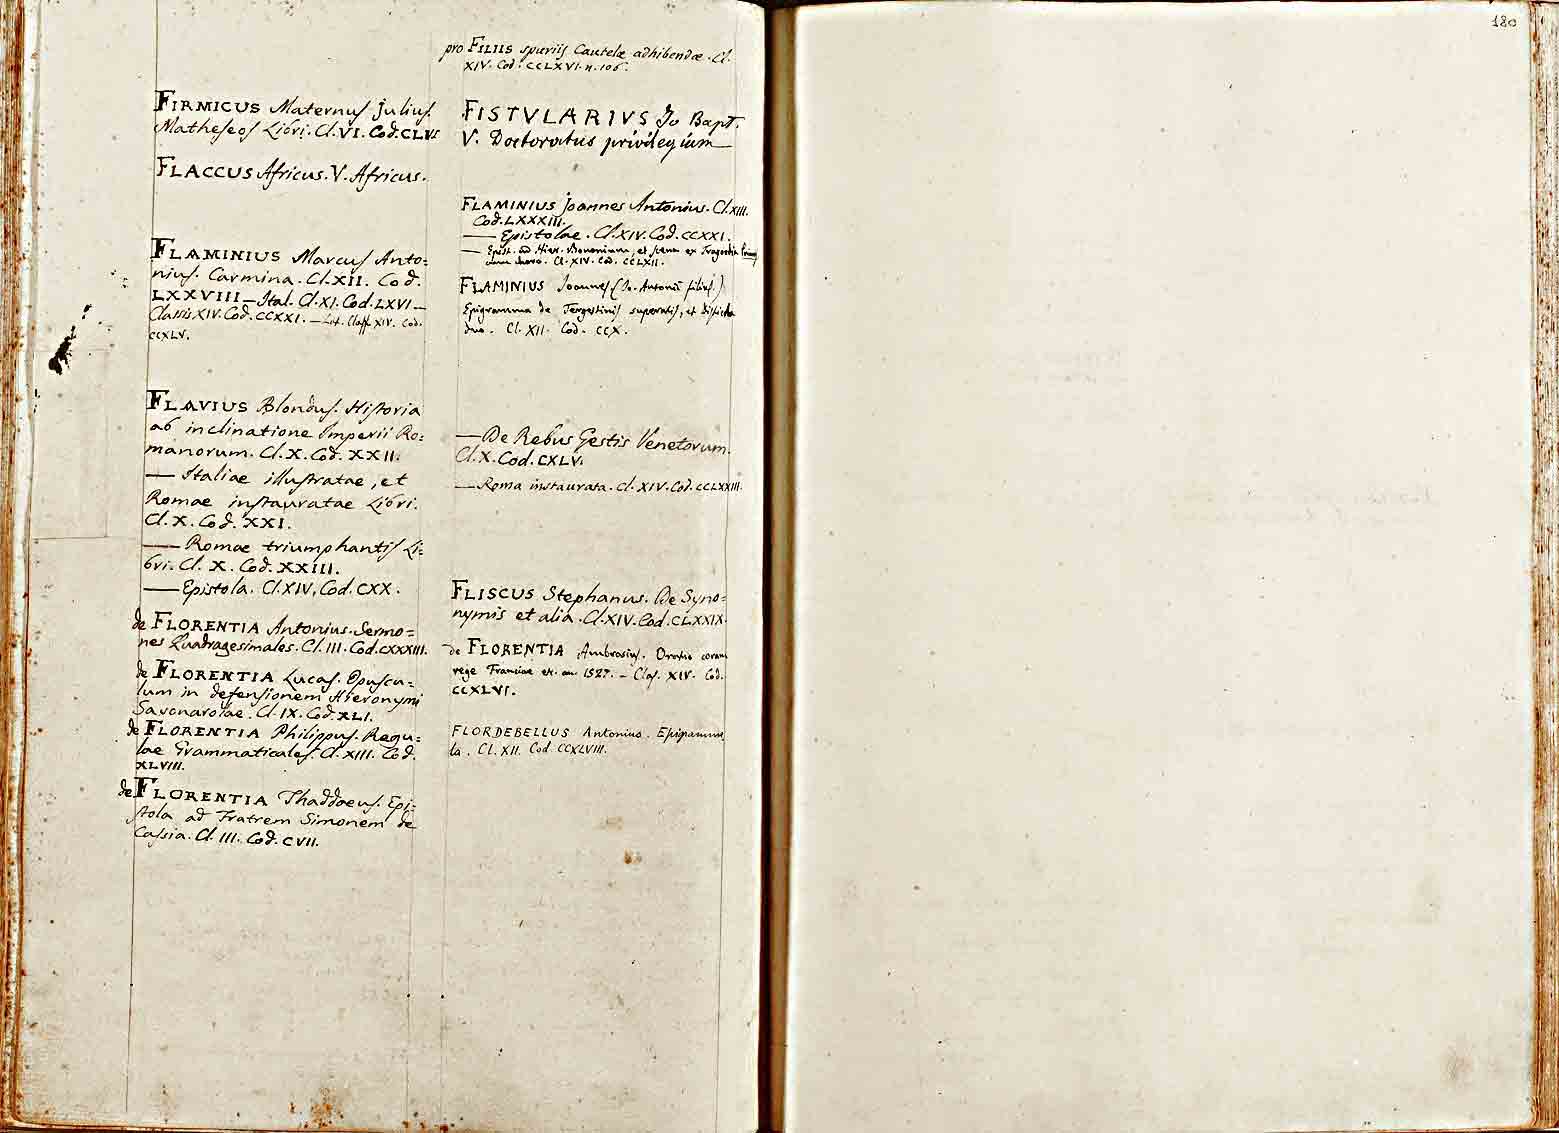 FIRMICUS Maternus Julius.
Matheseos Libri. Cl. VI. Cod. CLVI
FLACCUS Africus. V. Africus.
FLAMINIUS Marcus Anto=
nius. Carmina. Cl. XII. Cod.
LXXVIII — Ital. Cl. XI. Cod. LXVI —
Classis XIV. Cod. CCXXI. — Lit. Class. XIV. Cod.
CCXLV.
FLAVIUS Blondus. Historia
ab inclinatione Imperii Ro=
manorum. Cl. X. Cod. XXII.
— Italiae illustratae, et
Romae instauratae Libri.
Cl. X. Cod. XXI.
— Romae triumphantis Li=
bri. Cl. X. Cod. XXIII.
— Epistola. Cl. XIV. Cod. CXX.
de FLORENTIA Antonius. Sermo=
nes Quadragesimales. Cl. III. Cod. CXXXIII.
de FLORENTIA Lucas. Opuscu=
lum in defensionem Hieronymi
Savonarolae. Cl. IX. Cod. XLI.
de FLORENTIA Philippus. Regu=
lae Grammaticales. Cl. XIII. Cod.
XLVIII.
de FLORENTIA Thaddaeus. Epi=
stola ad Fratrem Simonem de
Cassia. Cl. III. Cod. CVII.
pro FILIIS spuriis Cautelæ adhibendæ. Cl.
XIV. Cod. CCLXVI. n. 106.
FISTVLARIVS Jo Bapt.
V. Doctoratus privilegium
FLAMINIUS Joannes Antonius. Cl. XIII.
Cod. LXXXIII.
— Epistolae. Cl. XIV. Cod. CCXXI.
— Epist. ad Hier. Bononium, et scena ex Tragoedia
Cl. XIV. Cod. CCLXII.
FLAMINIUS Joannes (Jo. Antonii filius.)
Epigramma de Tergestinis superatis, et disticha
duo. Cl. XII. Cod. CCX.
— De Rebus Gestis Venetorum.
Cl. X. Cod. CXLV.
— Roma instaurata. Cl. XIV. Cod. CCLXXIII.
FLISCUS Stephanus. De Syno=
nymis et alia. Cl. XIV. Cod. CLXXIX.
de FLORENTIA Ambrosius. Oratio coram
rege Franciae etc. an. 1527. — Clas. XIV. Cod.
CCXLVI.
FLORDEBELLUS Antonius. Epigramma
ta. Cl. XII. Cod. CCXLVIII.
180